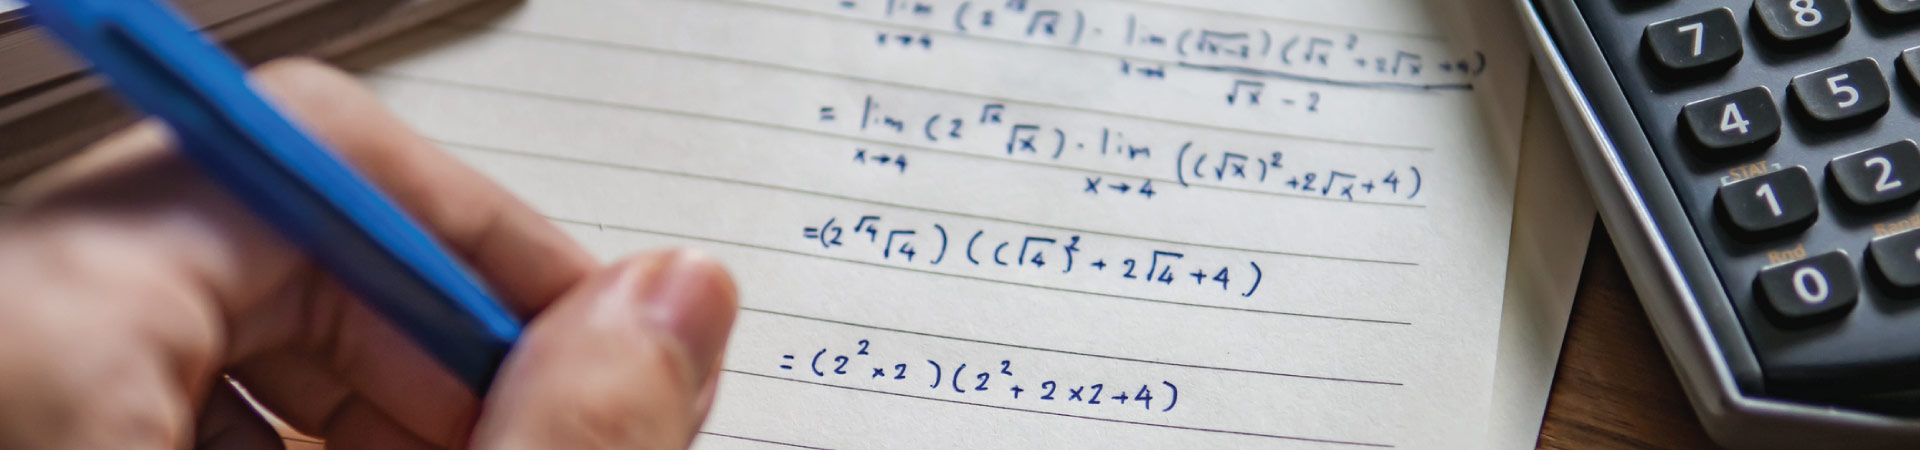 = lim (2^√x √x) · lim (√x-2)(√x² + 2√x + 4)
x→4 x→4 √x - 2
= lim (2^√x √x) · lim ((√x)² + 2√x + 4)
x→4 x→4
= (2^√4 √4) ((√4)² + 2√4 + 4)
= (2² × 2) (2² + 2 × 2 + 4)
7 8
4 5
STAT
1 2
Rnd
0